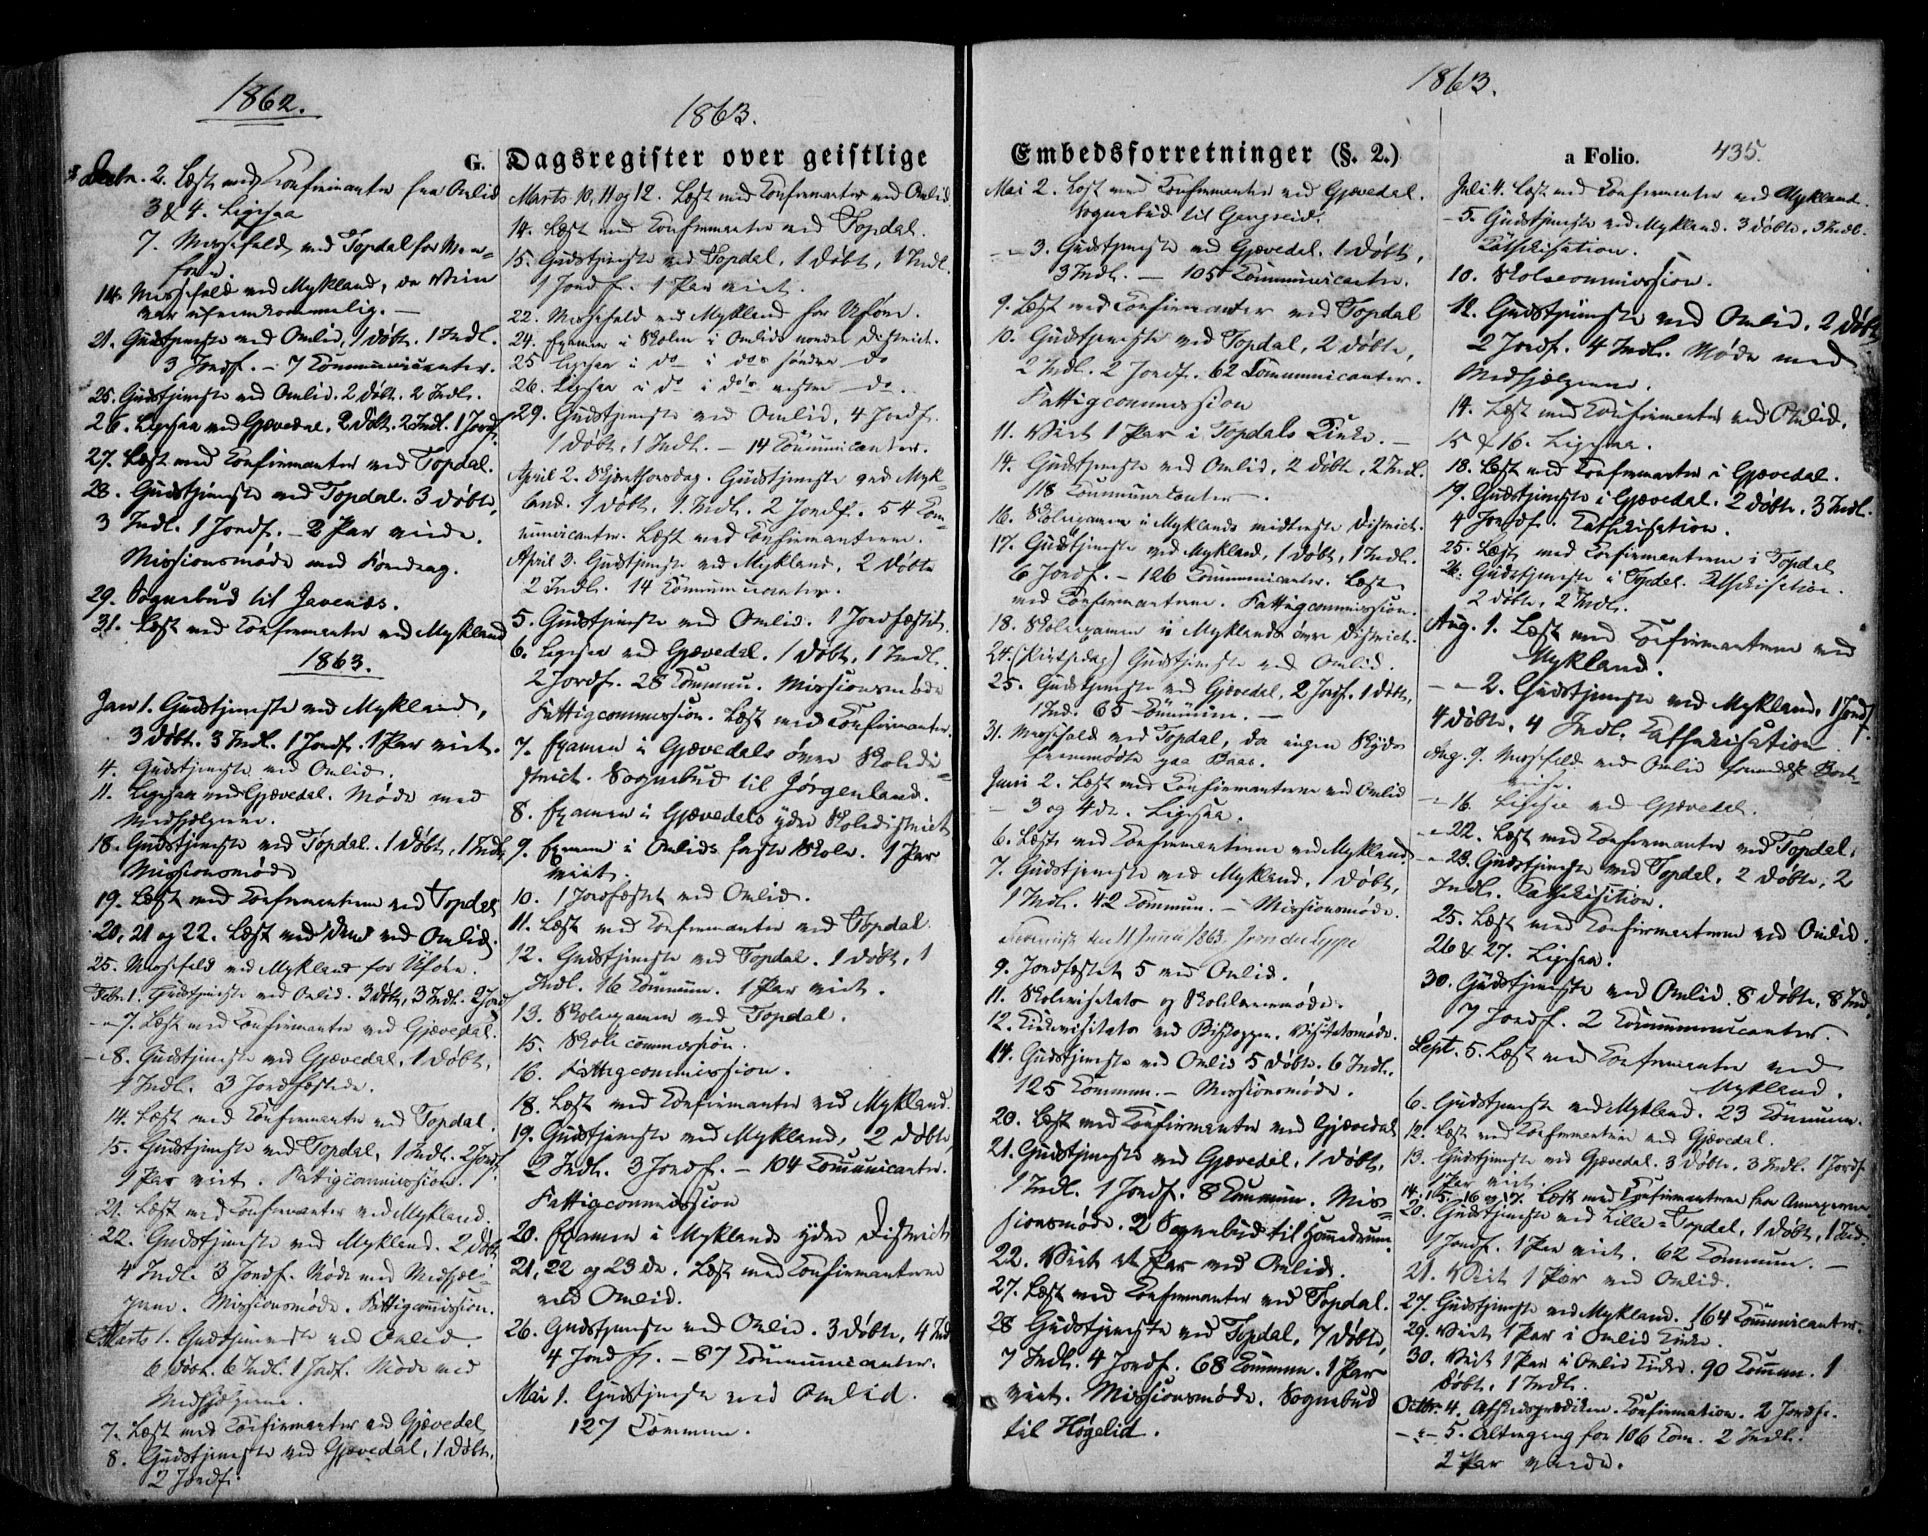 1862.
1863.
G. Dagsregister over geistlige
Decbr. 2. Læst med Confirmanter fra Omlid
3 & 4. Ligesaa
7. Messefald ved Topdal for Men-
føre.
14. Messefald ved Mykland, da Veien
var ufremkommelig. —
21. Gudstjeneste ved Omlid, 1 døbt. 1 Indl.
3 Jordf. - 7 Communicanter.
25. Gudstjeneste ved Omlid. 2 døbt. 2 Indl.
26. Ligesaa ved Gjævedal. 2 døbt. 2 Indl. 1 Jordf.
27. Læst med Confirmanter ved Topdal.
28. Gudstjeneste ved Topdal. 3 døbte,
3 Indl. 1 Jordf. - 2 Par viede.
Missionsmøde med Foredrag.
29. Sognebud til Javenæs.
31. Læst med Confirmanter ved Mykland
1863.
Jan 1. Gudstjeneste ved Mykland,
3 døbt. 3 Indl. 1 Jordf. 1 Par viet.
4. Gudstjeneste ved Omlid.
11. Ligesaa ved Gjævedal. Møde med
Medhjælperne.
18. Gudstjeneste ved Topdal. 1 døbt, 1 Indl.
Missionsmøde
19. Læst med Confirmanterne ved Topdal
20, 21 og 22. Læst med dem ved Omlid.
25. Messefald ved Mykland for Uføre.
Febr. 1. Gudstjeneste ved Omlid. 3 døbt, 3 Indl. 2 Jordf
- 7. Læst med Confirmanter ved Gjævedal.
- 8. Gudstjeneste ved Gjævedal, 1 døbt,
1 Indl. 3 Jordfæstede.
14. Læst med Confirmanter ved Topdal.
15. Gudstjeneste ved Topdal, 1 Indl. 2 Jordf.
1 Par viet. Fattigcommission.
21. Læst med Confirmanter ved Mykland.
22. Gudstjeneste ved Mykland. 2 døbt
4 Indl. 3 Jordf. Møde med Medhjæl-
perne. Missionsmøde. Fattigcommission.
Marts 1. Gudstjeneste ved Omlid
6 døbt. 6 Indl. 1 Jordf. Møde med
Medhjælperne.
7. Læst med Confirmanter ved Gjævedal
8. Gudstjeneste ved Gjævedal, 1 døbt,
2 Jordf.
Marts 10, 11 og 12. Læst med Confirmanter ved Omlid
14. Læst med Confirmanter ved Topdal.
15. Gudstjeneste ved Topdal, 1 døbt, 1 Indl.
1 Jordf. 1 Par viet.
22. Messefald ved Mykland for Uføre.
24. Examen i Skolen i Omlids nordre District.
25 Ligesaa i do i dos søndre do
26. Ligesaa i do i dos vestre do.
29. Gudstjeneste ved Omlid, 4 Jordf.
1 døbt, 1 Indl. - 14 Communicanter.
April 2. Skjærthorsdag. Gudstjeneste ved Myk-
land. 1 døbt, 1 Indl. 2 Jordf. 54 Com-
municanter. Læst med Confirmanterne.
April 3. Gudstjeneste ved Mykland, 2 døbte
2 Indl. 14 Communicanter.
5. Gudstjeneste ved Omlid. 1 Jordfæstet.
6. Ligesaa ved Gjævedal. 1 døbt, 1 Indl.
2 Jordf. 28 Commun. Missionsmøde
Fattigcommission. Læst med Confirmanter.
7. Examen i Gjævedals øvre Skoledi-
strict. Sognebud til Jørgenland.
8. Examen i Gjævedals ydre Skoledistrict
9. Examen i Omlids faste Skole. 1 Par
viet.
10. 1 Jordfæstet ved Omlid.
11. Læst med Confirmanter ved Topdal
12. Gudstjeneste ved Topdal. 1 døbt, 1
Indl. 16 Commun. 1 Par viet.
13. Skoleexamen ved Topdal.
15. Skolecommission.
16. Fattigcommission.
18. Læst med Confirmanter ved Mykland.
19. Gudstjeneste ved Mykland, 2 døbte
2 Indl. 3 Jordf. - 104 Communicanter.
Fattigcommission
20. Examen i Myklands ydre District
21, 22 og 23de. Læst med Confirmanterne
ved Omlid.
26. Gudstjeneste ved Omlid. 3 døbte, 4 Ind
4 Jordf. - 87 Communicanter.
Mai 1. Gudstjeneste ved Omlid.
127 Commun.
1863.
Embedsforretninger (§. 2.)
a Folio. 435.
Mai 2. Læst med Confirmanter ved Gjævedal.
Sognebud til
- 3. Gudstjeneste ved Gjævedal. 1 døbt,
3 Indl. - 105 Communicanter.
9. Læst med Confirmanter ved Topdal
10. Gudstjeneste ved Topdal, 2 døbte,
2 Indl. 2 Jordf. 62 Communicanter.
Fattigcommission
11. Viet 1 Par i Topdals Kirke. —
14. Gudstjeneste ved Omlid, 2 døbte, 2 Indl.
118 Communicanter.
16. Skoleexamen i Myklands midterste District.
17. Gudstjeneste ved Mykland, 1 døbt, 1 Indl.
6 Jordf. - 126 Communicanter. Læst
med Confirmanterne. Fattigcommission.
18. Skoleexamen i Myklands øvre District.
24. (Pintsedag) Gudstjeneste ved Omlid.
25. Gudstjeneste ved Gjævedal, 2 Jordf. 1 døbt,
1 Ind. 65 Commun. —
31. Messefald ved Topdal, da ingen Skyds
fremmødte paa
Juni 2. Læst med Confirmanterne ved Omlid
- 3 og 4de. Ligesaa.
6. Læst med Confirmanterne ved Mykland
7. Gudstjeneste ved Mykland, 1 døbt,
1 Indl. 42 Commun. - Missionsmøde.
den 11 Juni 1863.
9. Jordfæstet 5 ved Omlid.
11. Skolevisitats og Skolelærermøde.
12. Kirkevisitats ved Biskoppen. Visitatsmøde.
14. Gudstjeneste ved Omlid 5 døbte. 6 Indl.
125 Commun. - Missionsmøde.
20. Læst med Confirmanter ved Gjævedal
21. Gudstjeneste ved Gjævedal. 1 døbt,
1 Indl. 1 Jordf. 8 Commun. Mis-
sionsmøde. 2 Sognebud til
22. Viet et Par ved Omlid.
27. Læst med Confirmanter ved Topdal.
28 Gudstjeneste ved Topdal, 7 døbte,
7 Indl. 4 Jordf. 68 Commun. 1 Par
viet. Missionsmøde. Sognebud
til Høgelid.
Juli 4. Læst med Confirmanter ved Mykland.
- 5. Gudstjeneste ved Mykland. 3 døbte, 3 Indl.
Cathekisation.
10. Skolecommission.
12. Gudstjeneste ved Omlid. 2 døbte
2 Jordf. 4 Indl. Møde med
Medhjælperne.
14. Læst med Confirmanter ved Omlid.
15 & 16. Ligesaa.
18. Læst med Confirmanter i Gjævedal.
19. Gudstjeneste i Gjævedal. 2 døbte. 3 Indl.
4 Jordf. Cathekisation.
25. Læst med Confirmanterne i Topdal
26. Gudstjeneste i Topdal. Cathekisation.
2 døbte, 2 Indl.
Aug. 1. Læst med Confirmanterne ved
Mykland.
- 2. Gudstjeneste ved Mykland, 1 Jordf.
4 døbte, 4 Indl. Cathekisation.
Aug. 9. Messefald ved Omlid formedelst Bort-
reise.
- 16. Ligesaa ved Gjævedal.
- 22. Læst med Confirmanter ved Topdal.
- 23. Gudstjeneste ved Topdal, 2 døbte, 2
Indl. Cathekisation.
25. Læst med Confirmanterne ved Omlid.
26 & 27. Ligesaa.
30. Gudstjeneste ved Omlid. 8 døbte, 8 Ind.
7 Jordf. 2 Communicanter.
Sept. 5. Læst med Confirmanter ved
Mykland.
6. Gudstjeneste ved Mykland. 23 Commun.
12. Læst med Confirmanterne ved Gjævedal.
13. Gudstjeneste ved Gjævedal. 3 døbte. 3 Indl. 1 Jordf.
1 Par viet.
14. 15. 16 og 17. Læst med Confirmanterne fra Annexerne.
20. Gudstjeneste ved Lille-Topdal, 1 døbt, 1 Ind.
1 Jordf. 1 Par viet. 62 Commun. —
21. Viet 1 Par ved Omlid.
27. Gudstjeneste ved Mykland. 164 Communicanter.
29. Viet 1 Par i Omlid Kirke.
30. Viet 1 Par i Omlid Kirke. 90 Commun. 1
døbt. 1 Indl.
Octbr. 4. Afskedsprædiken. Confirmation. 2 Jordf.
- 5. Altergang for 106 Com. 2 Indl.
2 Par viede.